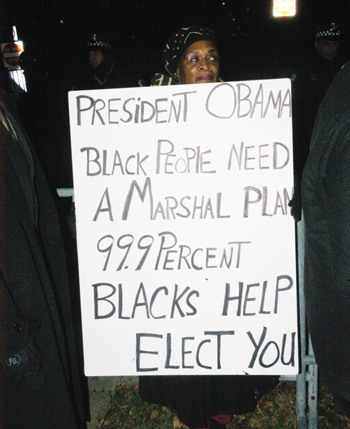 PRESIDENT OBAMA
BLACK PEOPLE NEED
A MARSHAL PLAN
99.9 PERCENT
BLACKS HELP
ELECT YOU